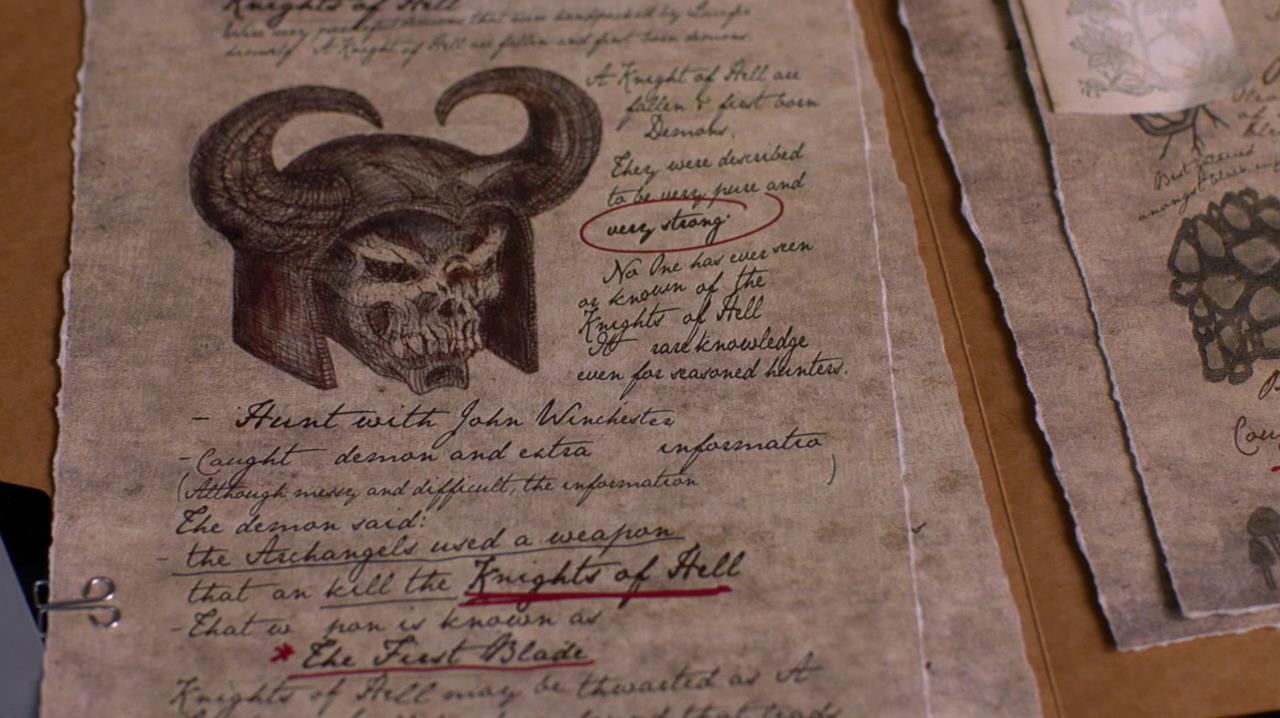 Knights of Hell
Were very powerful demons that were handpicked by Lucifer
himself. A Knight of Hell are fallen and first born demons.
A Knight of Hell are
fallen & first born
Demons.
They were described
to be very pure and
very strong.
No One has ever seen
or known of the
Knights of Hell
It rare knowledge
even for seasoned hunters.
- Hunt with John Winchester
- Caught demon and extra informatio
(Although messy and difficult, the information )
The demon said:
- the Archangels used a weapon
that an kill the Knights of Hell
- That w pon is known as
* The First Blade
Knights of Hell may be thwarted as A
that leads
Best
amongst black
of